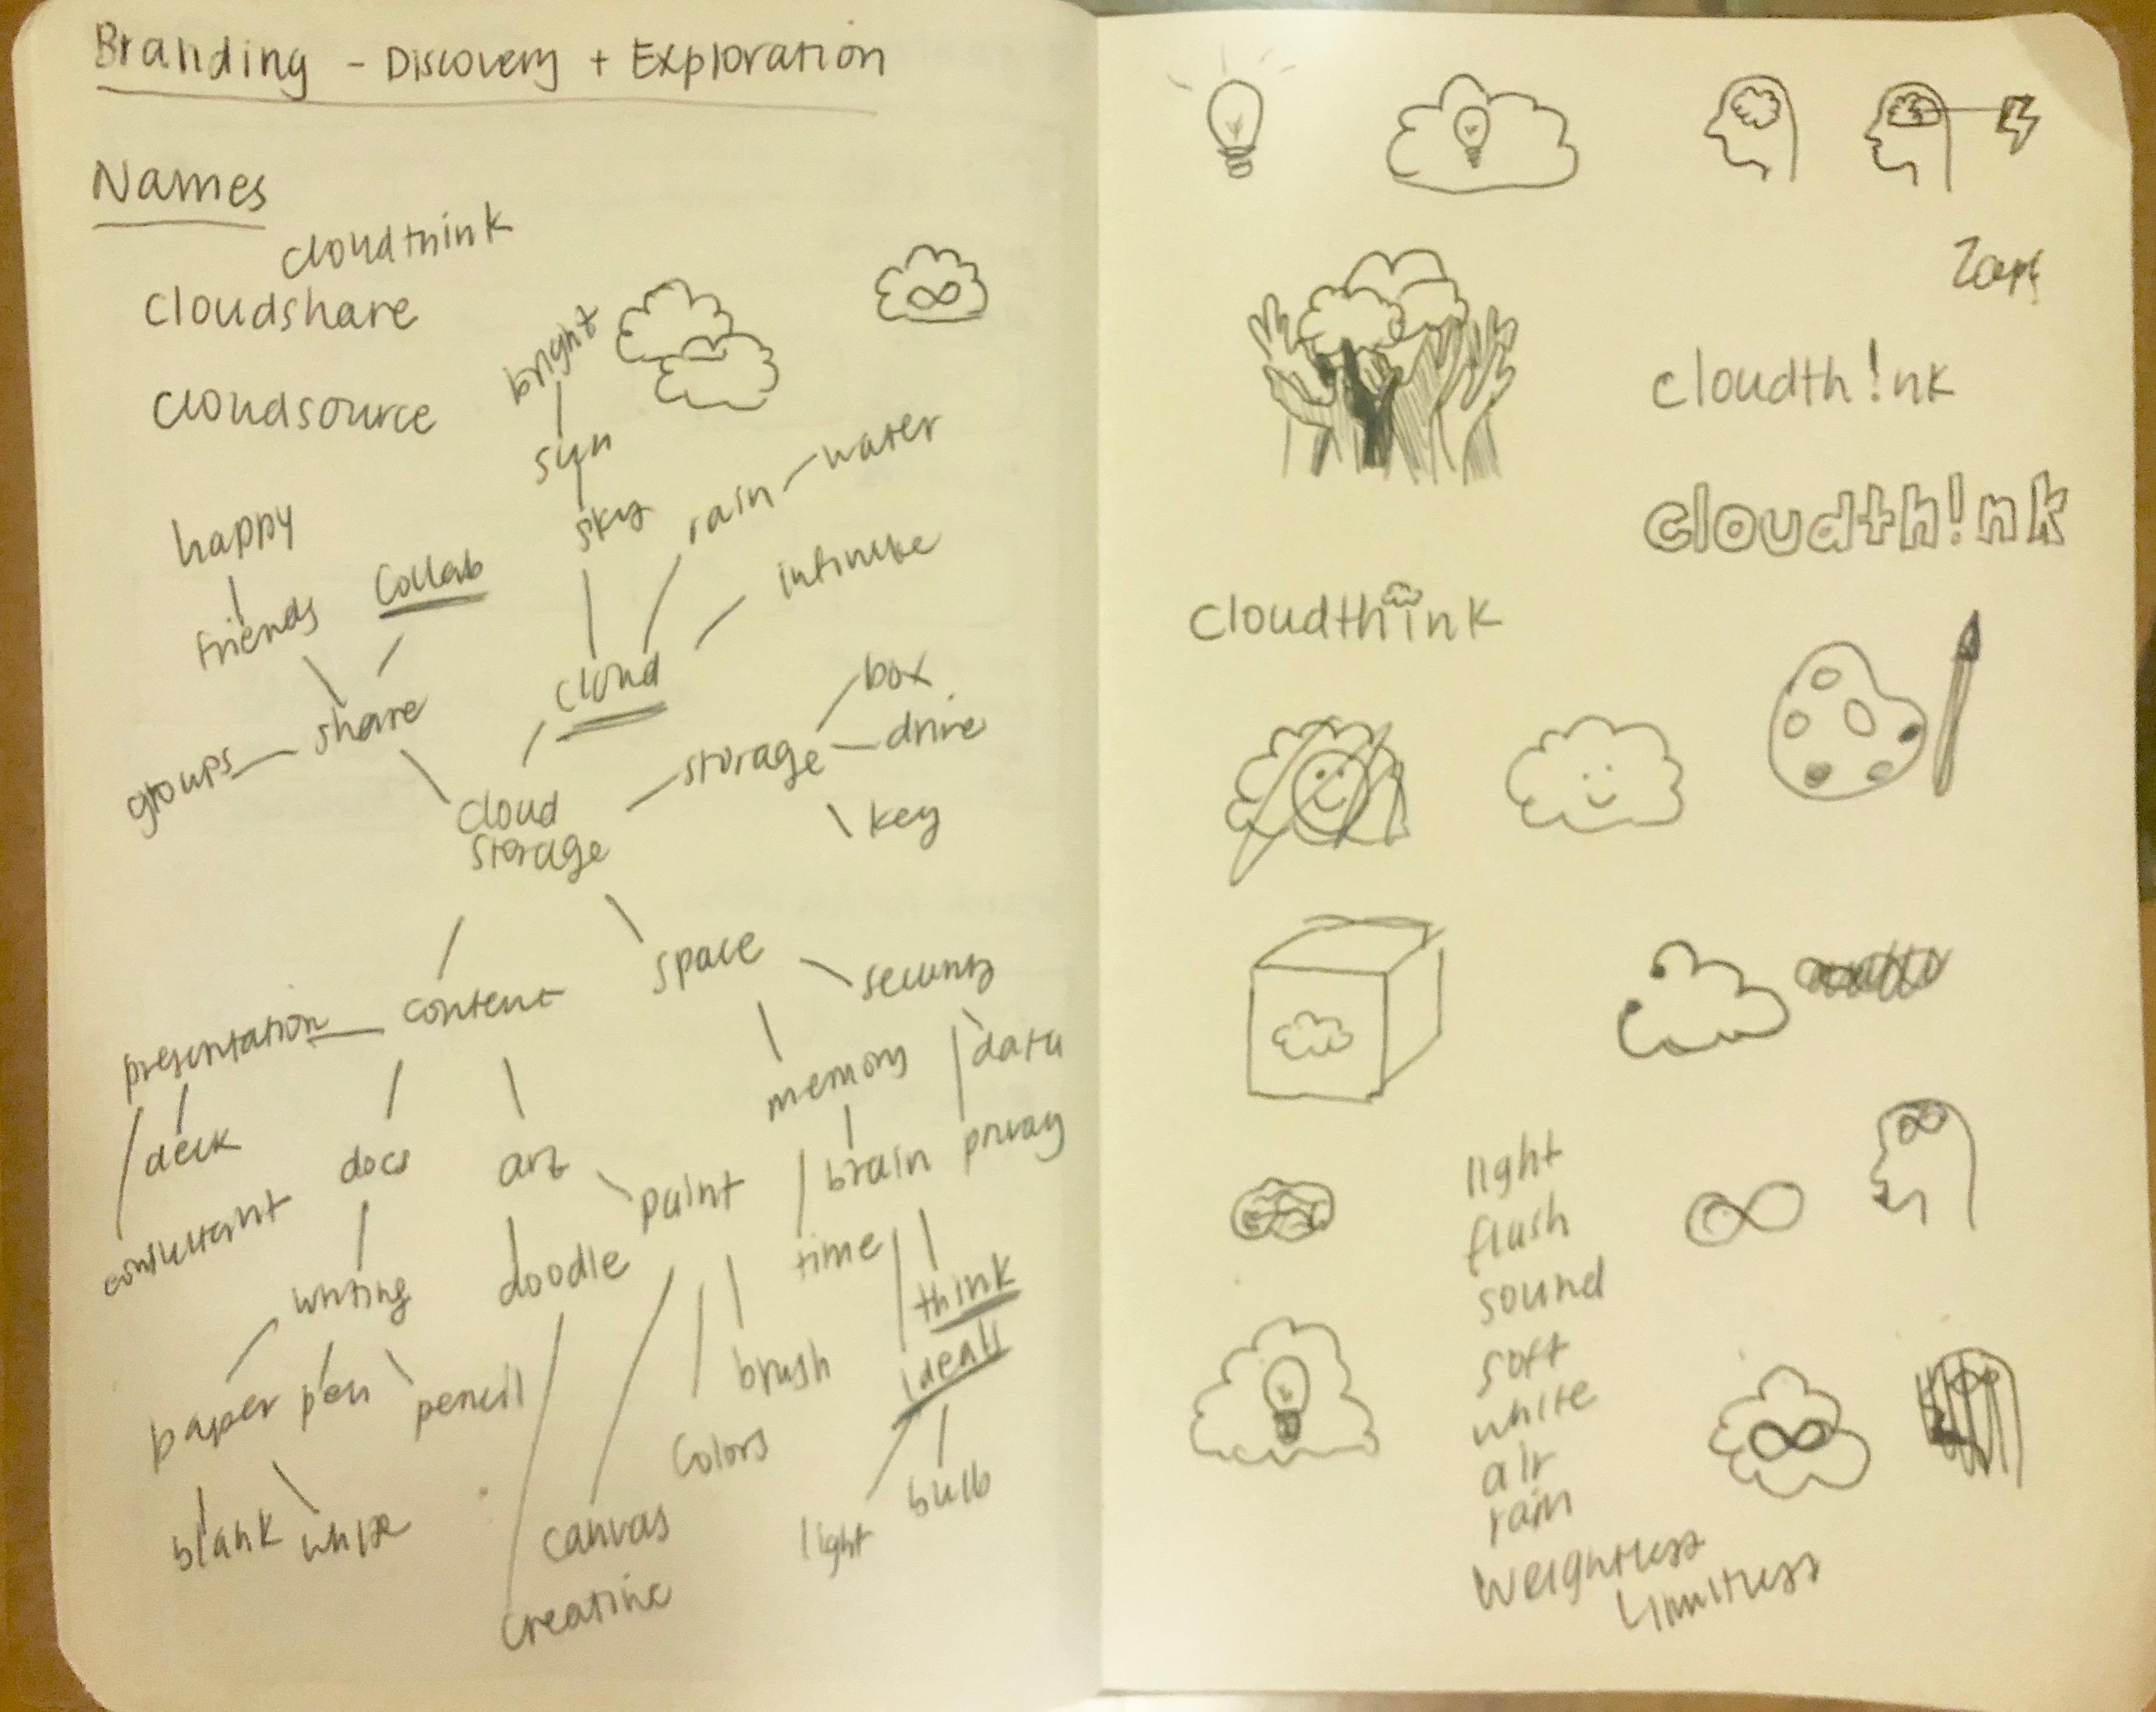 Branding - Discovery + Exploration
Names
cloudthink
cloudshare
cloudsource
bright
sun
sky
rain
water
infinite
happy
friends
Collab
share
groups
cloud
box
storage
drive
key
cloud
storage
space
security
content
presentation
memory
data
deck
docs
art
paint
brain
privacy
consultant
writing
doodle
time
think
ideas
paper
pen
pencil
brush
colors
blank
white
canvas
light
bulb
creative
cloudth!nk
cloudth!nk
cloudthink
light
flash
sound
soft
white
air
rain
Weightless
Limitless